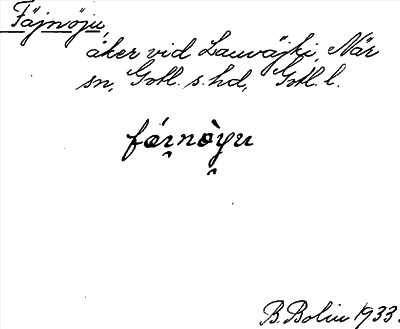 Fäjnöju,
åker vid Lauväjki, När
sn, Gotl. s. hd, Gotl. l.
B. Bolin 1933.